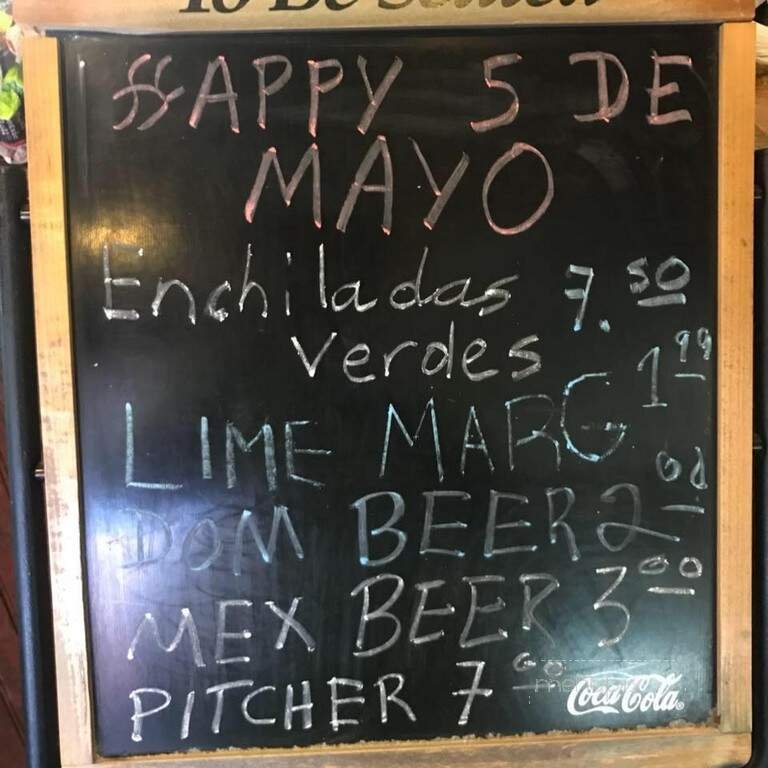 To Be Seated
HAPPY 5 DE
MAYO
Enchiladas 7.50
verdes
LIME MARG 1.99
DOM BEER 2.00
MEX BEER 3.00
PITCHER 7.00
Coca-Cola